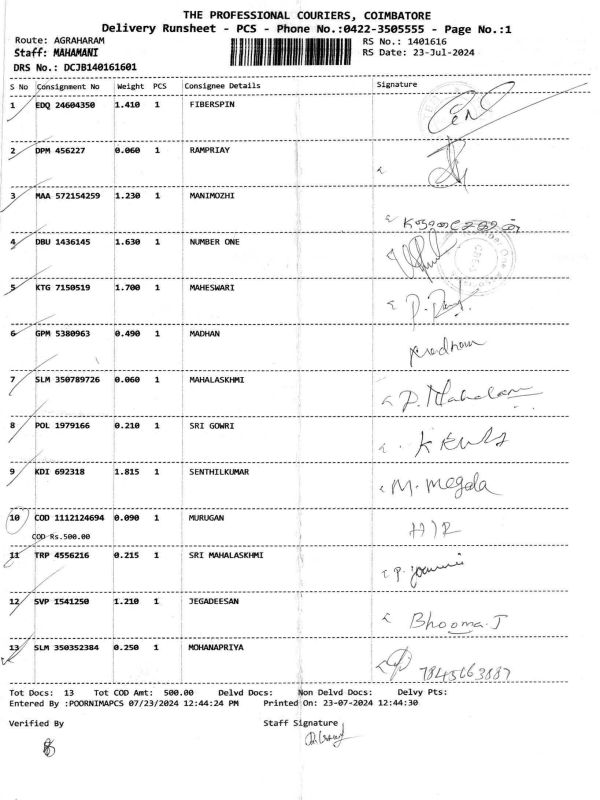 THE PROFESSIONAL COURIERS, COIMBATORE
Delivery Runsheet - PCS - Phone No.:0422-3505555 - Page No.:1
Route: AGRAHARAM RS No.: 1401616
Staff: MAHAMANI RS Date: 23-Jul-2024
DRS No.: DCJB140161601
S No Consignment No Weight PCS Consignee Details Signature
1 EDQ 24604350 1.410 1 FIBERSPIN
2 DPM 456227 0.060 1 RAMPRIAY
3 MAA 572154259 1.230 1 MANIMOZHI
4 DBU 1436145 1.630 1 NUMBER ONE
5 KTG 7150519 1.700 1 MAHESWARI
6 GPM 5380963 0.490 1 MADHAN
7 SLM 350789726 0.060 1 MAHALASKHMI P. Mahalaxmi
8 POL 1979166 0.210 1 SRI GOWRI
9 KDI 692318 1.815 1 SENTHILKUMAR M. Megala
10 COD 1112124694 0.090 1 MURUGAN
COD Rs.500.00
11 TRP 4556216 0.215 1 SRI MAHALASKHMI
12 SVP 1541250 1.210 1 JEGADEESAN Bhooma.J
13 SLM 350352384 0.250 1 MOHANAPRIYA 7845663887
Tot Docs: 13 Tot COD Amt: 500.00 Delvd Docs: Non Delvd Docs: Delvy Pts:
Entered By :POORNIMAPCS 07/23/2024 12:44:24 PM Printed On: 23-07-2024 12:44:30
Verified By Staff Signature